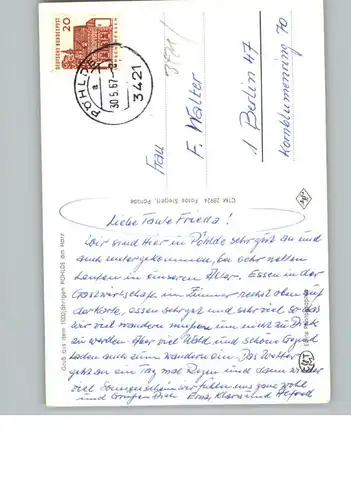 20
DEUTSCHE BUNDESPOST
PÖHLDE
a
30.5.67
3421
Frau
F. Walter
1 Berlin 47
Kornblumenring 70
CTM 28924 Fotos Siegert, Pöhlde
Gruß aus dem 1000jährigen PÖHLDE am Harz
Liebe Tante Frieda!
Wir sind hier in Pöhlde sehr gut an und
auch untergekommen, bei sehr netten
Leuten in unserem Alter. Essen in der
Gastwirtschaft Zimmer rechst oben auf
der Karte, essen sehr gut und sehr viel so das
wir viel wandern müßen um nicht zu Dick
zu werden. Aber viel Wald und schöne Gegend
laden auch zum wandern ein. Das Wetter
geht an ein Tag mal Regen und dann wieder
viel Sonnenschein wir fühlen uns ganz wohl
und Erna, Klara und Alfred